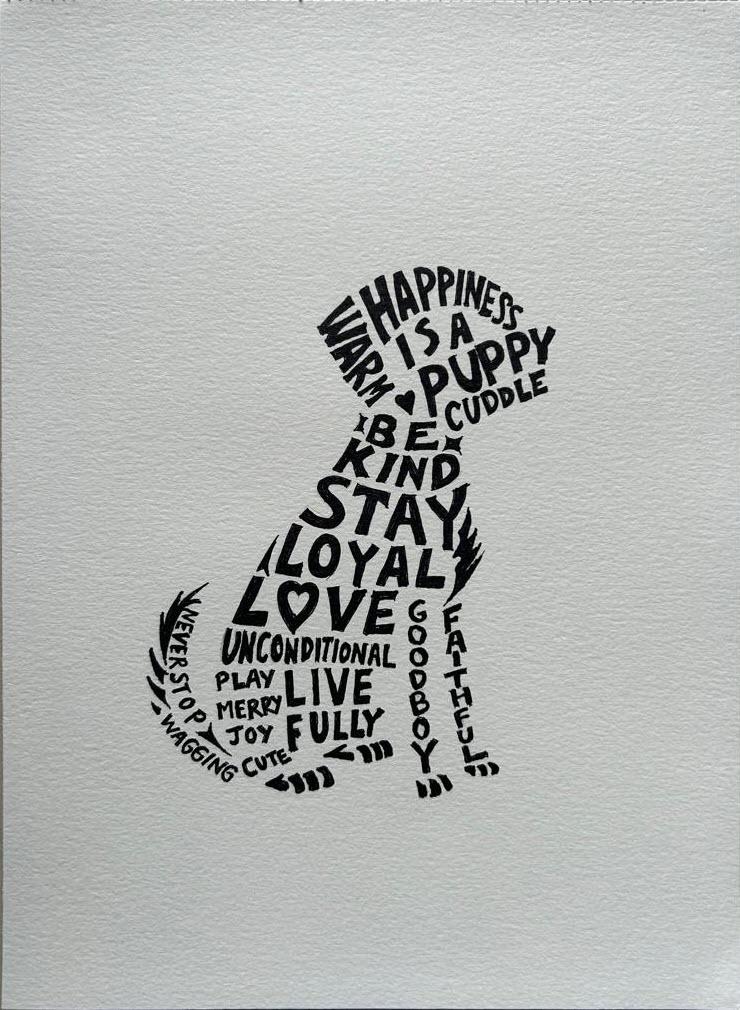 HAPPINESS
WARM
IS A
PUPPY
CUDDLE
BE
KIND
STAY
LOYAL
LOVE
UNCONDITIONAL
PLAY
LIVE
MERRY
FULLY
JOY
CUTE
NEVER STOP
WAGGING
GOOD BOY
FAITHFUL